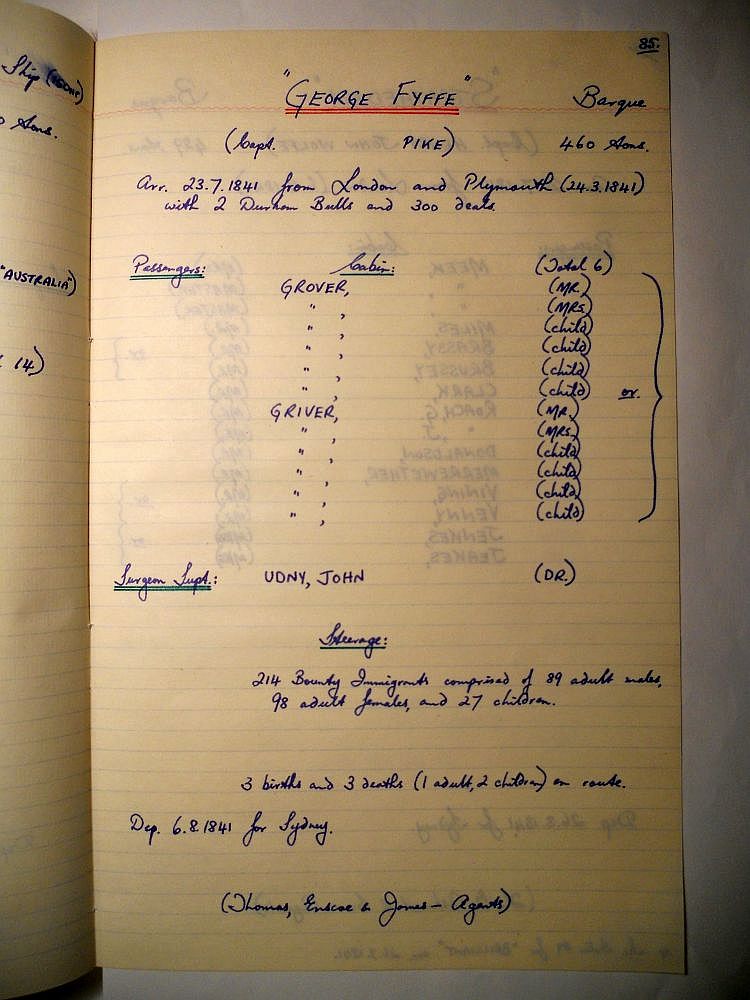 Ship (
85.
tons.
"GEORGE FYFFE" Barque
(Capt. PIKE) 460 tons.
Arr. 23.7.1841 from London and Plymouth (24.3.1841)
with 2 Durham Bulls and 300 deals.
"AUSTRALIA")
14)
Passengers: Cabin: (Total 6)
GROVER, (MR.)
" , (MRS.)
" , (child)
" , (child)
" , (child)
" , (child) or.
GRIVER, (MR.)
" , (MRS.)
" , (child)
" , (child)
" , (child)
" , (child)
Surgeon Supt.: UDNY, JOHN (DR.)
Steerage:
214 Bounty Immigrants comprised of 89 adult males,
98 adult females, and 27 children.
3 births and 3 deaths (1 adult, 2 children) en route.
Dep. 6.8.1841 for Sydney.
(Thomas, Enscoe & James - Agents)